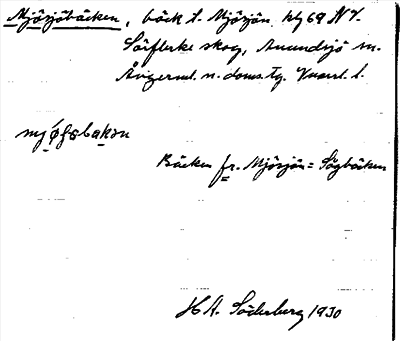 Mjösjöbäcken, bäck t. Mjösjön. kbl 69 NV.
Sörflärke skog, Anundsjö sn.
Ångerml. n. doms. tg. Vnorrl. l.
mjøʃøbakən
Bäcken fr. Mjösjön = Sågbäcken
H A. Söderberg 1930